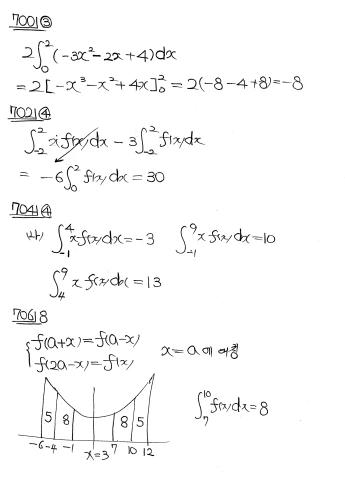 7001 ③
2∫₀²(-3x²-2x+4)dx
=2[-x³-x²+4x]₀²=2(-8-4+8)=-8
702 ④
∫₋₂²xf(x)dx-3∫₋₂²f(x)dx
=-6∫₀²f(x)dx=30
704 ④
∫₋₁⁴xf(x)dx=-3 ∫₋₁⁹xf(x)dx=10
∫₄⁹xf(x)dx=13
706 8
f(a+x)=f(a-x)
f(2a-x)=f(x)
x=a에 대칭
5 8 8 5
-6 -4 -1 x=3 7 10 12
∫₇¹⁰f(x)dx=8